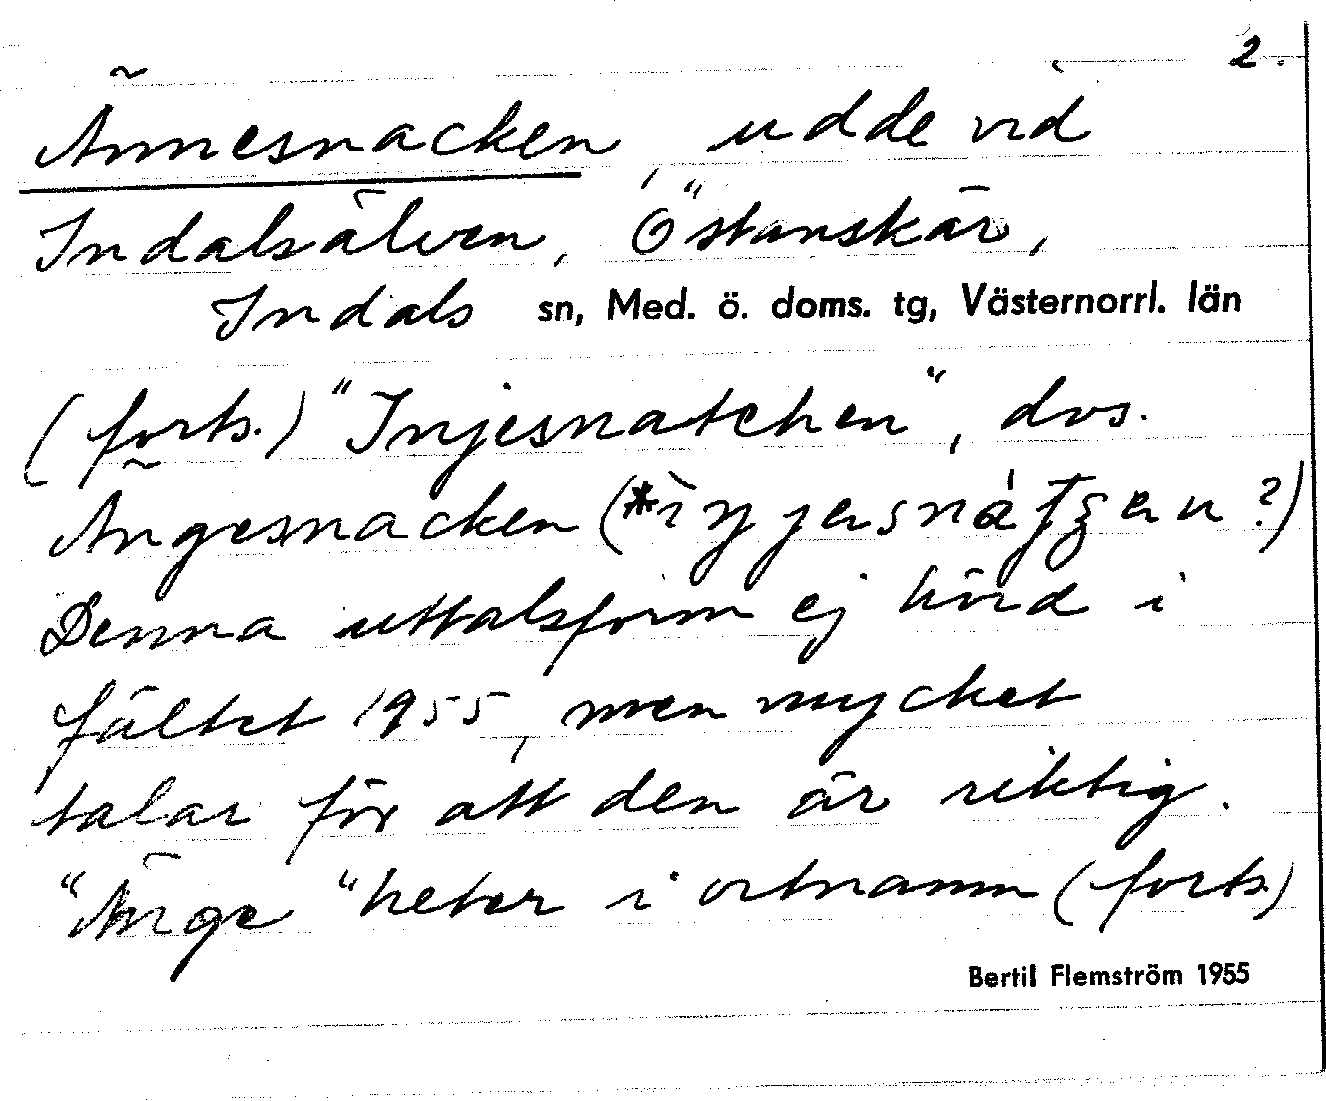 2.
Ännesnacken, udde vid
Indalsälven, Östanskär,
Indals sn, Med. ö. doms. tg, Västernorrl. län
(forts.) "Injesnatchen", dvs.
Ängesnacken (
Denna uttalsform ej hörd i
fältet 1955, men mycket
talar för att den är riktig.
"Änge" heter i ortnamn (forts.)
Bertil Flemström 1955